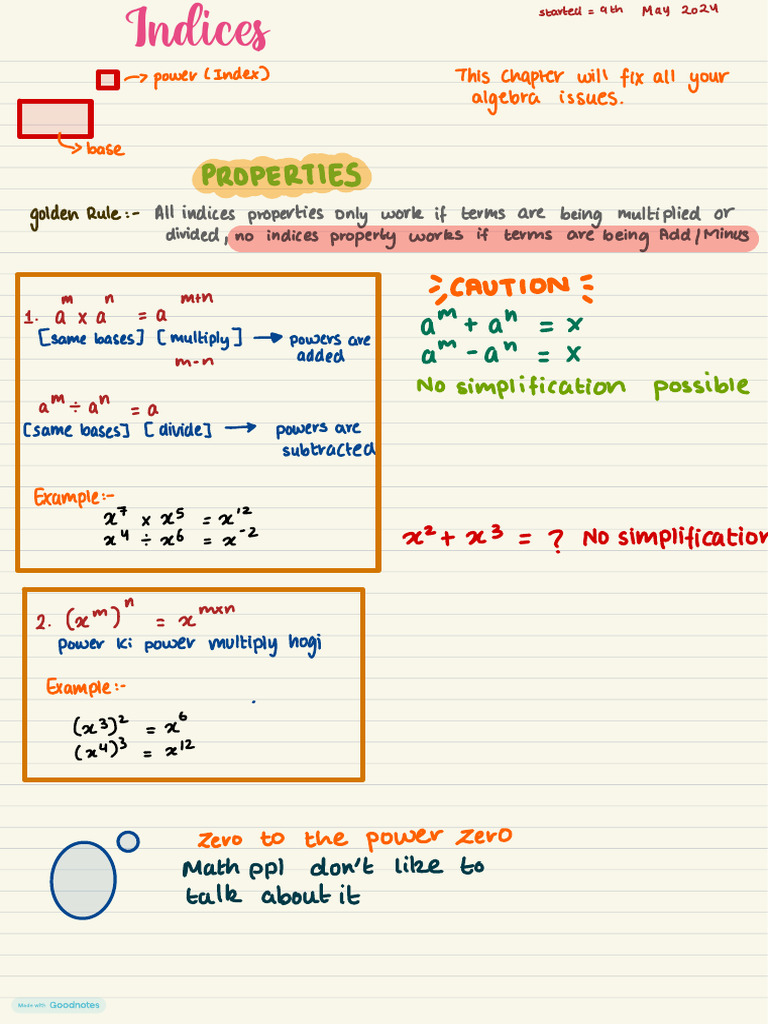 Indices
started = 9th May 2024
power (Index)
This Chapter will fix all your
algebra issues.
base
PROPERTIES
golden Rule:- All indices properties only work if terms are being multiplied or
divided, no indices property works if terms are being Add/Minus
1. a^m x a^n = a^m+n
[same bases] [multiply] → powers are
added
a^m ÷ a^n = a^m-n
[same bases] [divide] → powers are
subtracted
Example:-
x^7 x x^5 = x^12
x^4 ÷ x^6 = x^-2
CAUTION
a^m + a^n = x
a^m - a^n = x
No simplification possible
x^2 + x^3 = ? No simplification
2. (x^m)^n = x^mxn
power ki power multiply hogi
Example:-
(x^3)^2 = x^6
(x^4)^3 = x^12
Zero to the power zero
Math ppl don't like to
talk about it
Made with Goodnotes